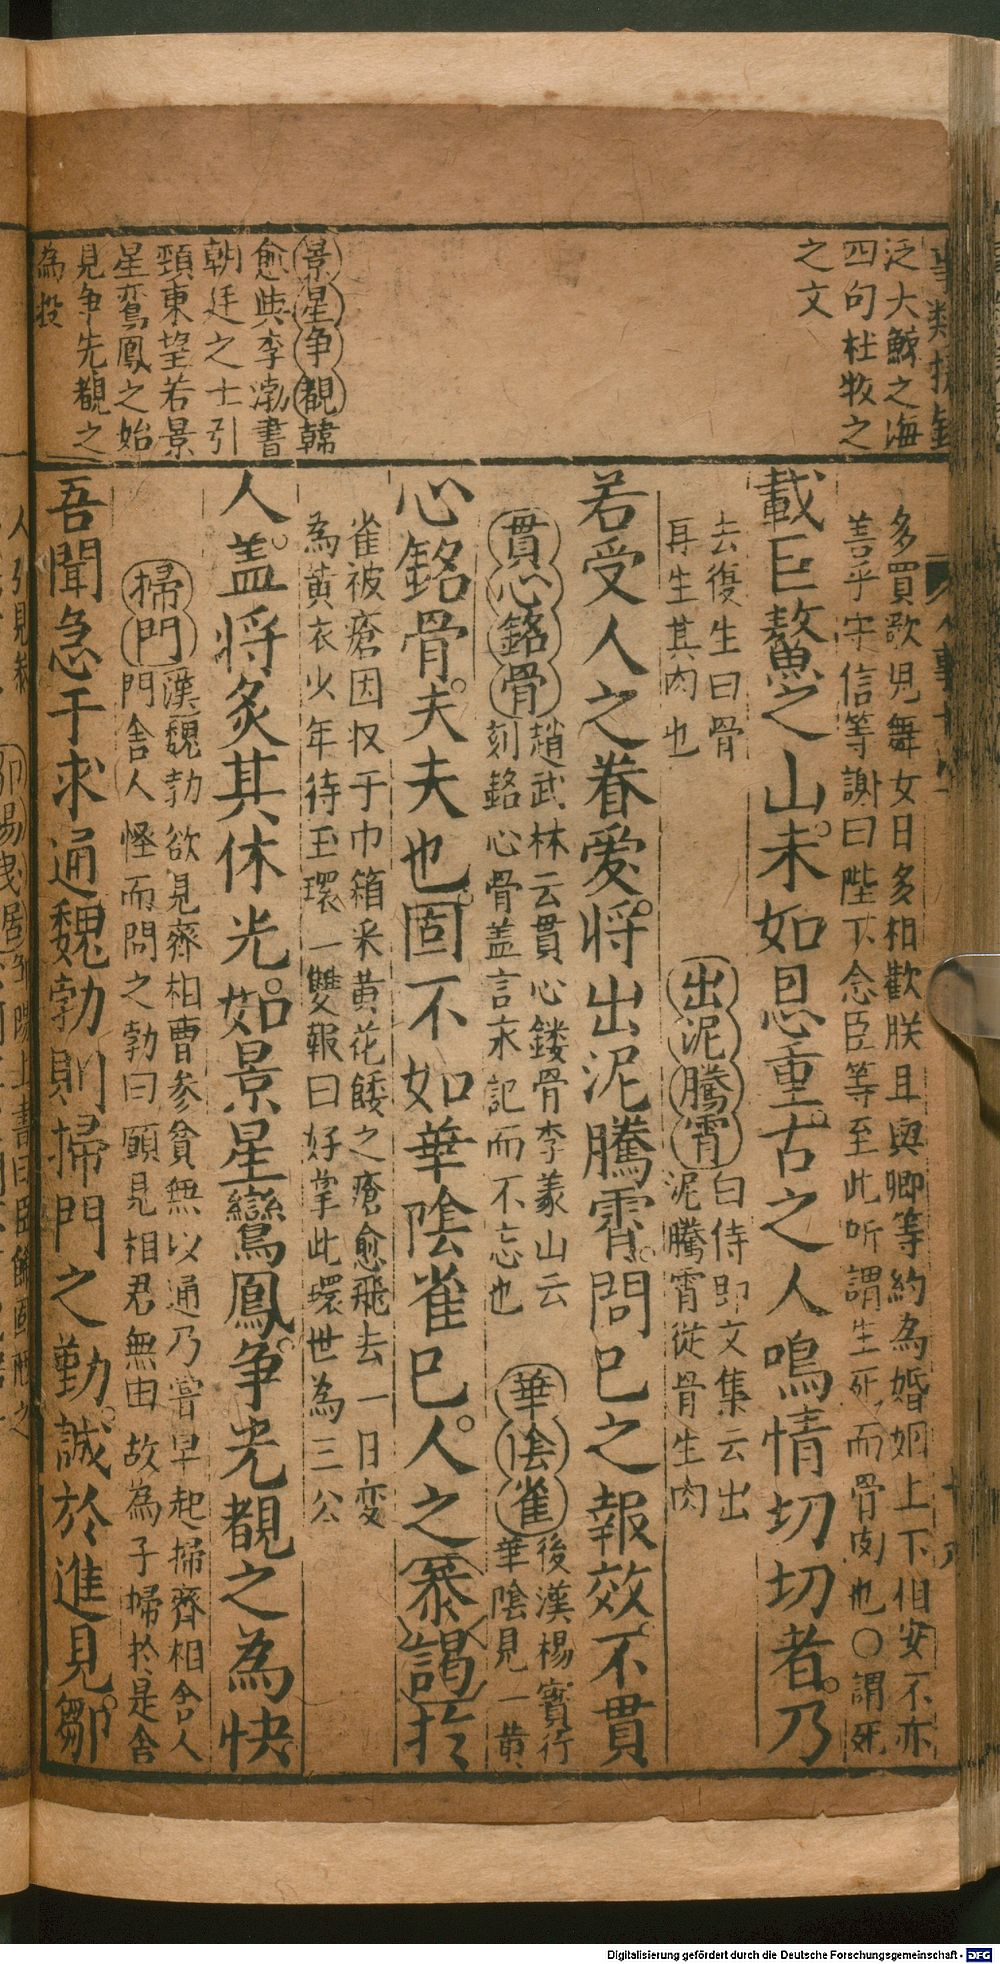 泛大鯨之海
四句杜牧之
之文
景星争覩韓
愈與李渤書
朝廷之士引
頸東望若景
星鸞鳳之始
見争先覩之
為投
多買歌児舞女日多相歡朕且與卿等約為婚姻上下相安不亦
善乎守信等謝曰陛下念臣等至此所謂生死而骨肉也〇謂死
載巨鰲之山未如恩重古之人鳴情切切者乃
去復生曰骨
再生其肉也
出泥騰霄
白侍郎文集云出
泥騰霄從骨生肉
若受人之眷愛将出泥騰霄問已之報效不貫
貫心銘骨
趙武林云貫心鏤骨李義山云
刻銘心骨盖言永記而不忘也
華陰雀
後漢楊寶行
華陰見一黄
心銘骨夫夫也固不如華陰雀已人之叅謁於
雀被瘡因収于巾箱采黄花餧之瘡愈飛去一日变
為黄衣少年待玉環一雙報曰好掌此環世為三公
人盖将炙其休光如景星鸞鳳争光覩之為快
掃門
漢魏勃欲見齊相曹參貧無以通乃嘗早起掃齊相舍人
門門舍人怪而問之勃曰願見相君無由故為子掃於是舍
吾聞急于求通魏勃則掃門之勤誠於進見鄒
Digitalisierung gefördert durch die Deutsche Forschungsgemeinschaft - DFG